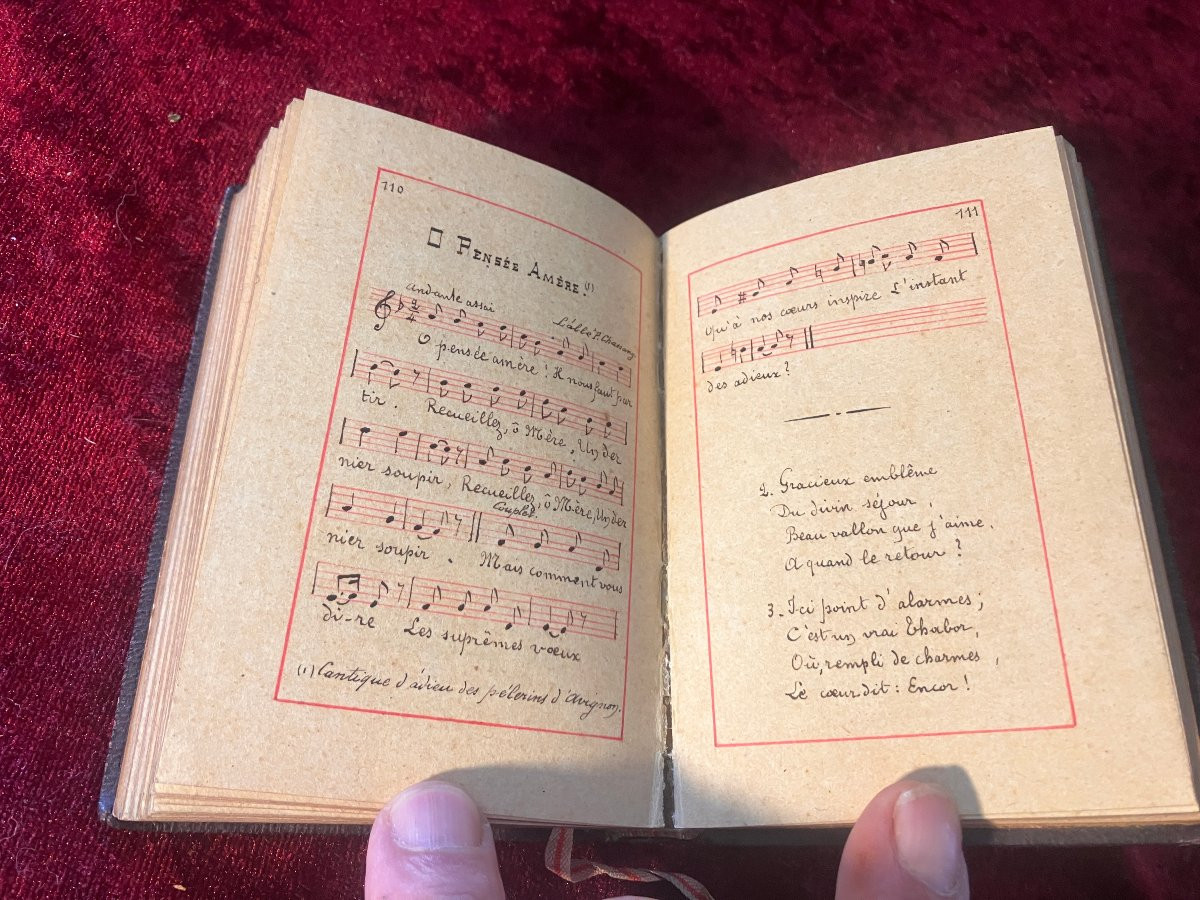 110
O PENSÉE AMÈRE! (1)
Andante assai
L'abbé P.
O pensée amère! Il nous faut par
tir. Recueillez, ô Mère, Un der
nier soupir, Recueillez, ô Mère, Un der
Couplet.
nier soupir. Mais comment vous
di-re Les suprêmes vœux
(1) Cantique d'adieu des pèlerins d'Avignon.
111
Qu'à nos cœurs inspire L'instant
des adieux?
2. Gracieux emblême
Du divin séjour,
Beau vallon que j'aime,
A quand le retour?
3. Ici point d'alarmes;
C'est un vrai Thabor,
Où, rempli de charmes,
Le cœur dit: Encor!